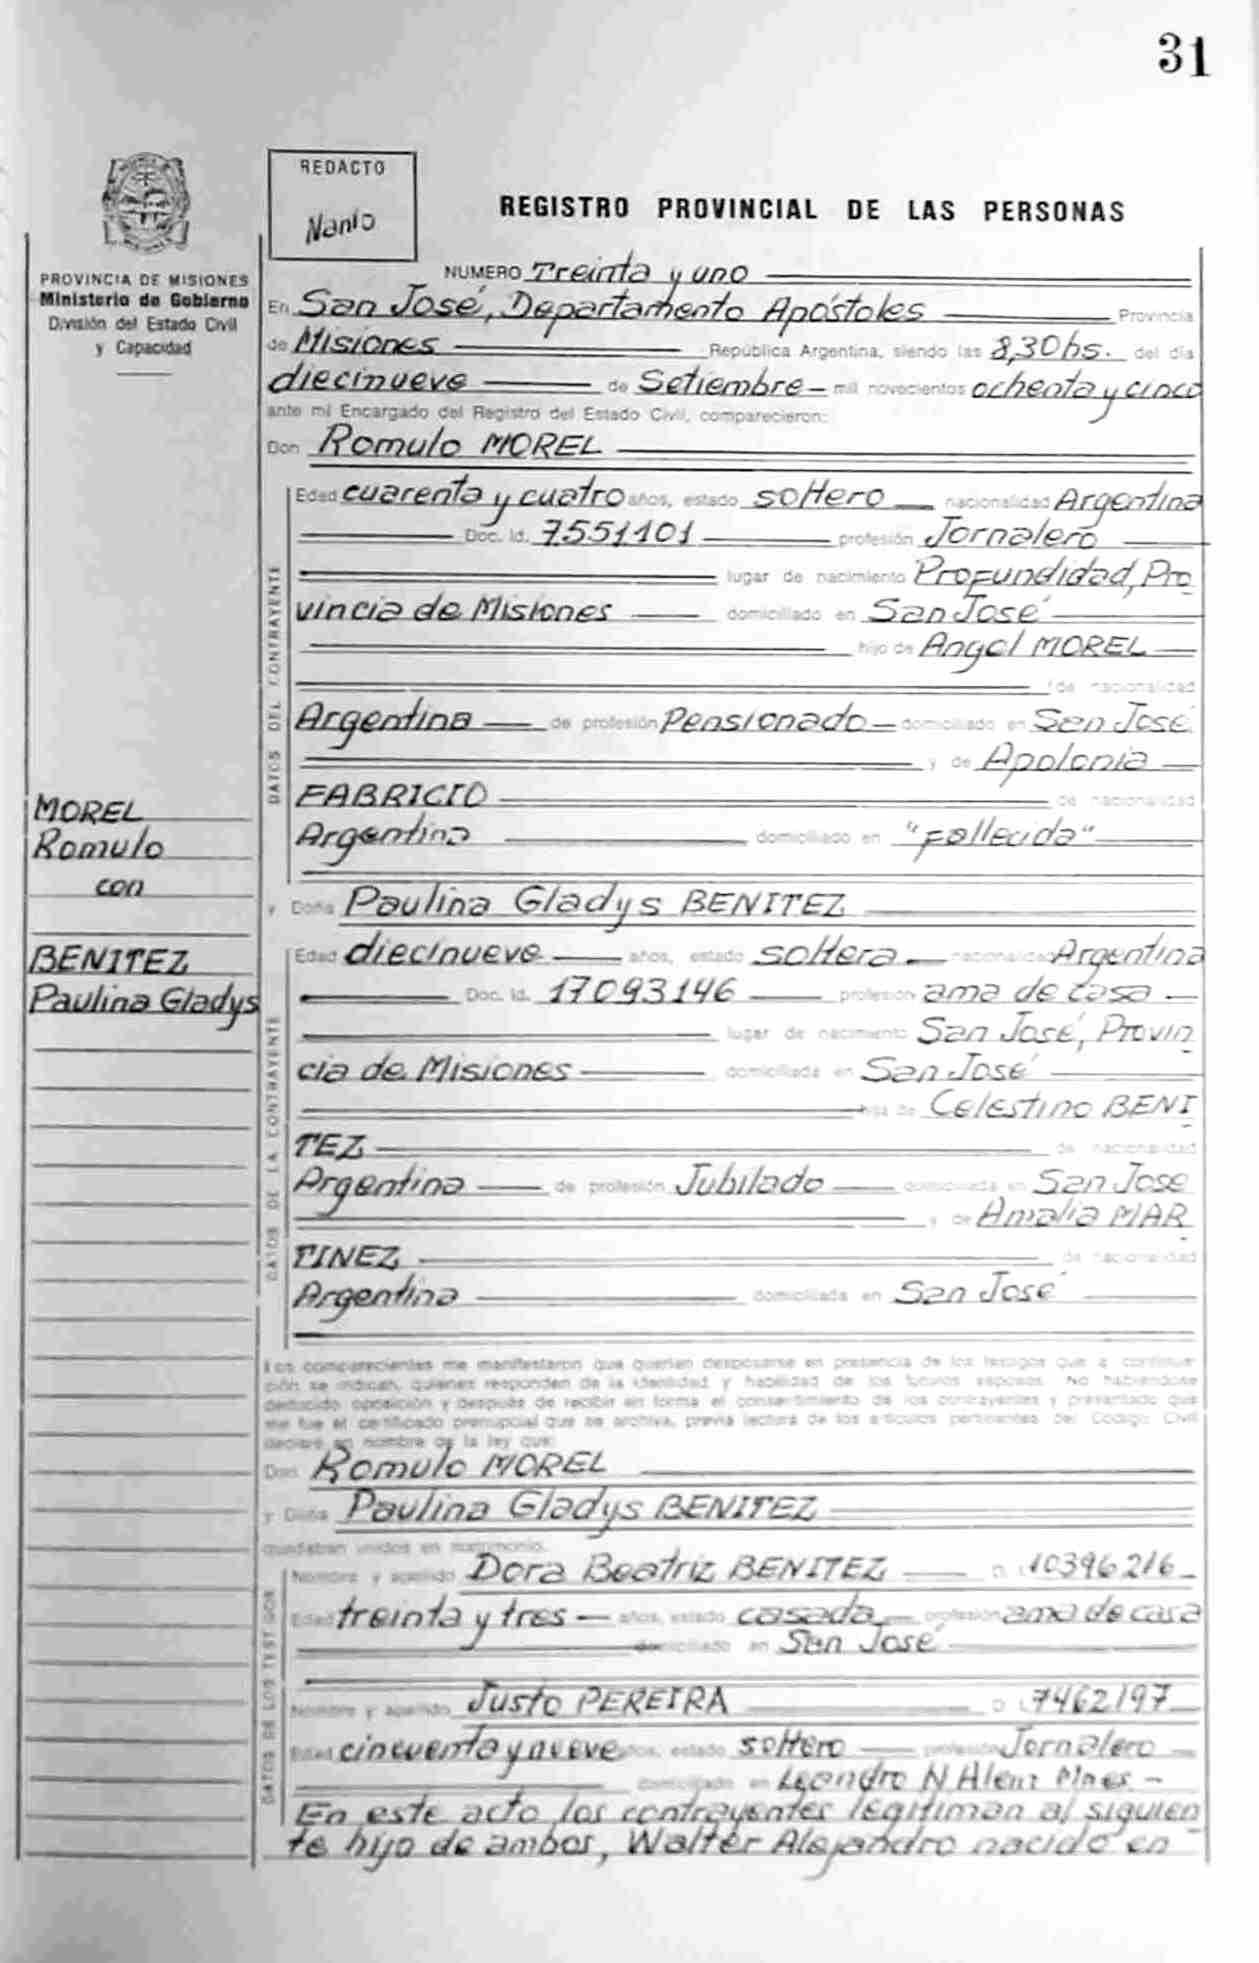 31
REDACTO
Nanio
REGISTRO PROVINCIAL DE LAS PERSONAS
PROVINCIA DE MISIONES
Ministerio de Gobierno
División del Estado Civil
y Capacidad
NUMERO Treinta y uno
En San José, Departamento Apóstoles Provincia
de Misiones República Argentina, siendo las 8,30 hs. del día
diecinueve de Setiembre mil novecientos ochenta y cinco
ante mi Encargado del Registro del Estado Civil, comparecieron:
Don Romulo MOREL
DATOS DEL CONTRAYENTE
Edad cuarenta y cuatro años, estado soltero nacionalidad Argentina
Doc. Id. 7551101 profesión Jornalero
lugar de nacimiento Profundidad, Pro
vincia de Misiones domiciliado en San José
hijo de Angel MOREL
de nacionalidad
Argentina de profesión Pensionado domiciliado en San José
y de Apolonia
FABRICIO de nacionalidad
Argentina domiciliado en "fallecida"
MOREL
Romulo
con
BENITEZ
Paulina Gladys
y Doña Paulina Gladys BENITEZ
DATOS DE LA CONTRAYENTE
Edad diecinueve años, estado soltera nacionalidad Argentina
Doc. Id. 17093146 profesión ama de casa
lugar de nacimiento San José, Provin
cia de Misiones domiciliada en San José
hija de Celestino BENI
TEZ de nacionalidad
Argentina de profesión Jubilado domiciliado en San Jose
y de Amalia MAR
TINEZ de nacionalidad
Argentina domiciliada en San José
Los comparecientes me manifestaron que querían desposarse en presencia de los testigos que a continua-
ción se indican, quienes responden de la identidad y habilidad de los futuros esposos. No habiéndose
deducido oposición y después de recibir en forma el consentimiento de los contrayentes y presentado que
me fue el certificado prenupcial que se archiva, previa lectura de los artículos pertinentes del Código Civil
declaro en nombre de la ley que:
Don Romulo MOREL
y Doña Paulina Gladys BENITEZ
quedaban unidos en matrimonio.
DATOS DE LOS TESTIGOS
Nombre y apellido Dora Beatriz BENITEZ 10396216
Edad treinta y tres años, estado casada profesión ama de casa
domiciliado en San José
Nombre y apellido Justo PEREIRA 7462197
Edad cincuenta y nueve años, estado soltero profesión Jornalero
domiciliado en Leandro N Alem Mnes
En este acto los contrayentes legitiman al siguien
te hijo de ambos, Walter Alejandro nacido en